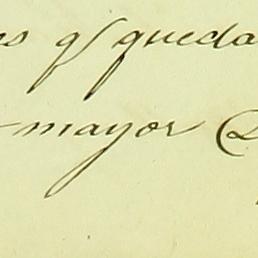 q/ queda
mayor